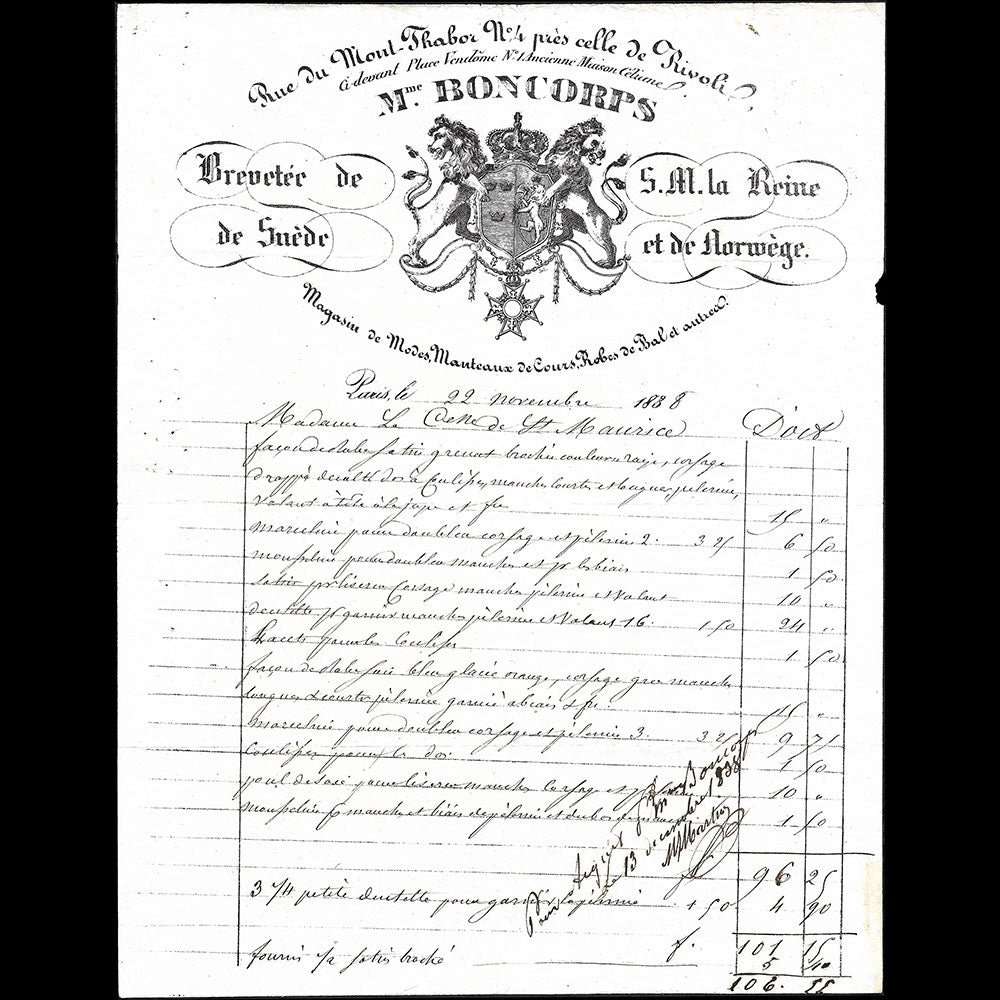 Rue du Mont-Thabor N°4 près celle de Rivoli,
Ci-devant Place Vendôme N°1. Ancienne Maison Céliane.
Mme. BONCORPS
Brevetée de S.M. la Reine
de Suède et de Norwège.
Magasin de Modes, Manteaux de Cours, Robes de Bal et autres.
Paris, le 22 novembre 1838
Madame La Ctesse de St Maurice Doit
façon de robe satin grenat broché couleur, corsage
drappé décolté dos à coulisses, manches courtes et longues, pelerine,
volant à tête à la jupe et fre 15 "
marceline pour doubler corsage et pelerine 2. 3 25 6 50
mousseline pour doubler manches et pr les biais 1 50
satin pr liserer corsage manches pelerine et volant 10 "
dentelle pr garnir manches pelerine et volant 16. 1 50 24 "
lacets pour les coulisses 1 50
façon de robe soie bleu glacé orange, corsage gros manches
longues & courtes pelerine garnie à biais & fre 15 "
marceline pour doubler corsage et pelerine 3. 3 25 9 75
coulisses pour le dos 1 50
poul de soie pour liserer manches corsage et 10 "
mousseline pr manches et biais de pelerine et du bas de manches 1 50
f 96 25
3 1/4 petite dentelle pour garnir la pelerine 1 50 4 90
f. 101 15
fourni 1/2 satin broché 5 40
106. 55
Pour acquit Boncorps
le 13 décembre 1838